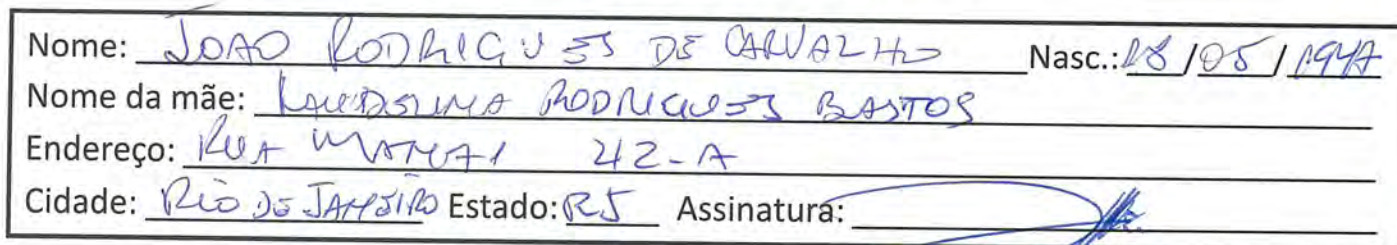 Nome: JOAO RODRIGUES DE CARVALHO Nasc.: 18/05/1947
Nome da mãe: RODRIGUES BASTOS
Endereço: RUA 42-A
Cidade: RIO DE JANEIRO Estado: RJ Assinatura: